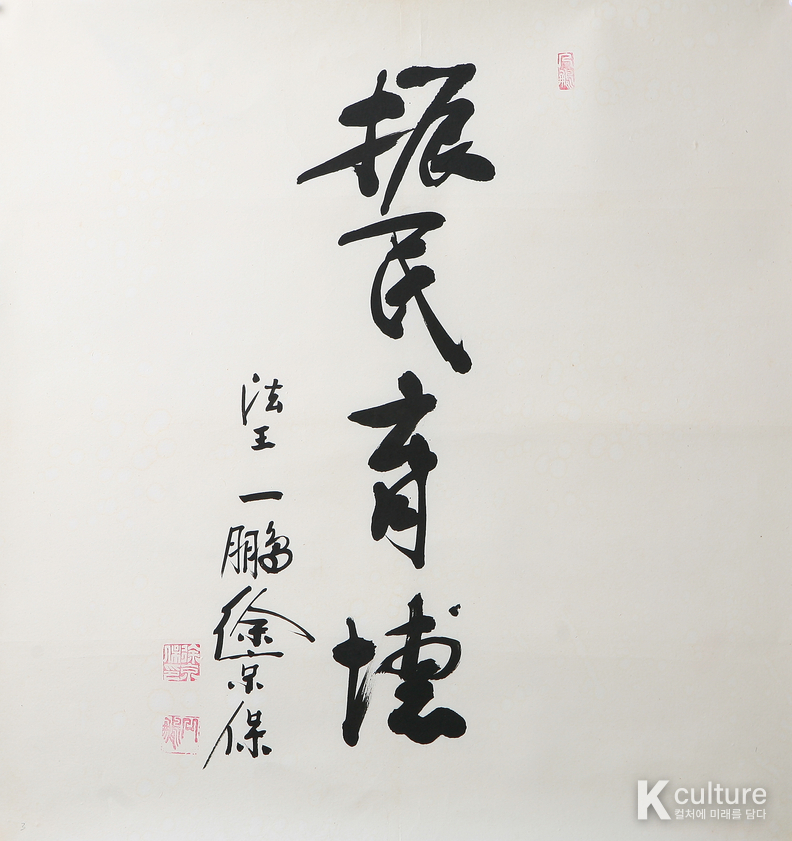 振民育德
法王 一鵬 徐京保
K culture
컬처에 미래를 담다